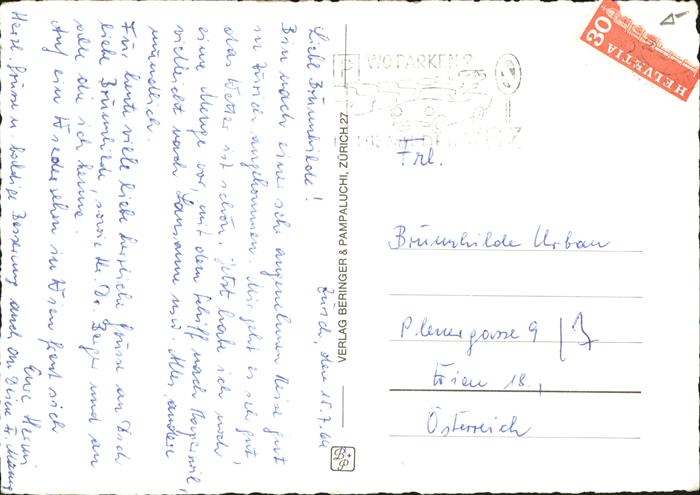 Zürich, den 15.7.64
Liebe Brünnhilde!
Bin nach einer sehr angenehmen Reise gut
in Zürich angekommen. Mir geht es sehr gut,
das Wetter ist schön. Jetzt habe ich noch
eine Menge vor, mit dem Schiff nach Rapperswil,
vielleicht nach Lausanne usw. Alles andere
mündlich.
Für heute viele liebe herzliche Grüsse an Dich
liebe Brünnhilde, sowie Hr. Dr. Berger und an
alle die ich kenne.
Auf ein Wiedersehen in Wien freut sich
Eure
Herzl. Grüsse u. baldige Besserung auch an Deine
VERLAG BERINGER & PAMPALUCHI, ZÜRICH 27
B+P
P WO PARKEN?
HELVETIA
30
Frl.
Brünnhilde Urban
Plenergasse 9 / 7
Wien 18.,
Österreich